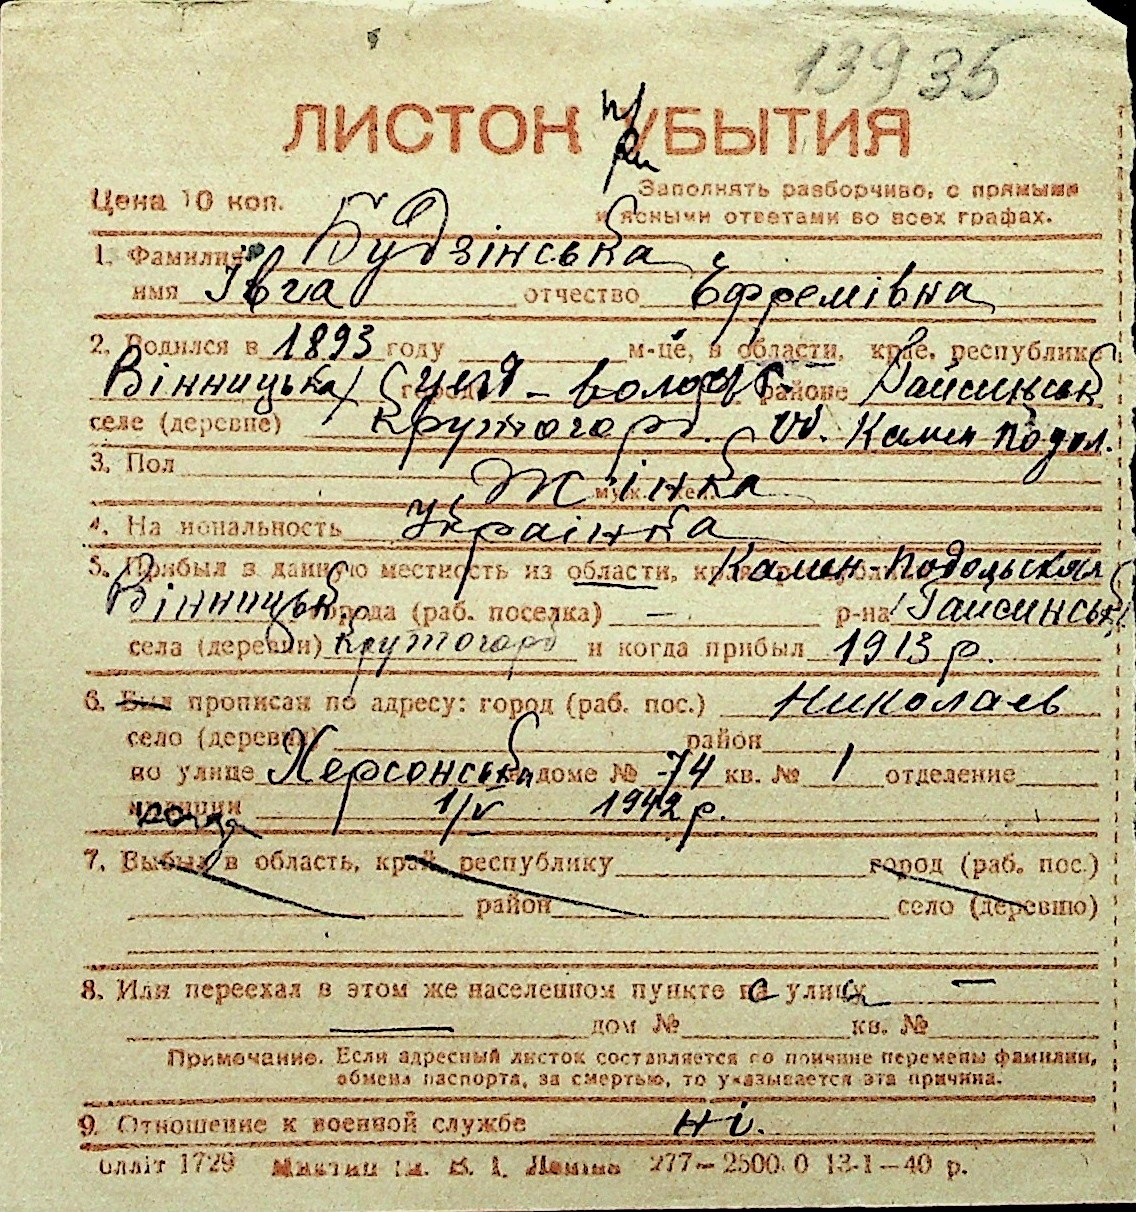 13935
ЛИСТОК УБЫТИЯ
при
Цена 10 коп.
Заполнять разборчиво, с прямыми
и ясными ответами во всех графах.
1. Фамилия Будзінська
имя Івга отчество Єфремівна
2. Родился в 1893 году м-це, в области, крае, республике
Вінницька город районе Гайсинськ
селе (деревне) Крутогорб. Камен Подол.
3. Пол Жінка
4. Национальность Українка
5. Прибыл в данную местность из области, края, Камен-Подольская
Вінницьк города (раб. поселка) — р-на Гайсинськ
села (деревни) Крутогорб и когда прибыл 1913 р.
6. Был прописан по адресу: город (раб. пос.) Николаев
село (деревня) район
по улице Херсонська доме № 74 кв. № 1 отделение
милиции когда 1/V 1942 р.
7. Выбыл в область, край, республику город (раб. пос.)
район село (деревню)
8. Или переехал в этом же населенном пункте с улицы —
дом № кв. №
Примечание. Если адресный листок составляется по причине перемены фамилии,
обмена паспорта, за смертью, то указывается эта причина.
9. Отношение к военной службе ні.
Облліт 1729 ім. В. І. Леніна 277—2500.0 13-1—40 р.